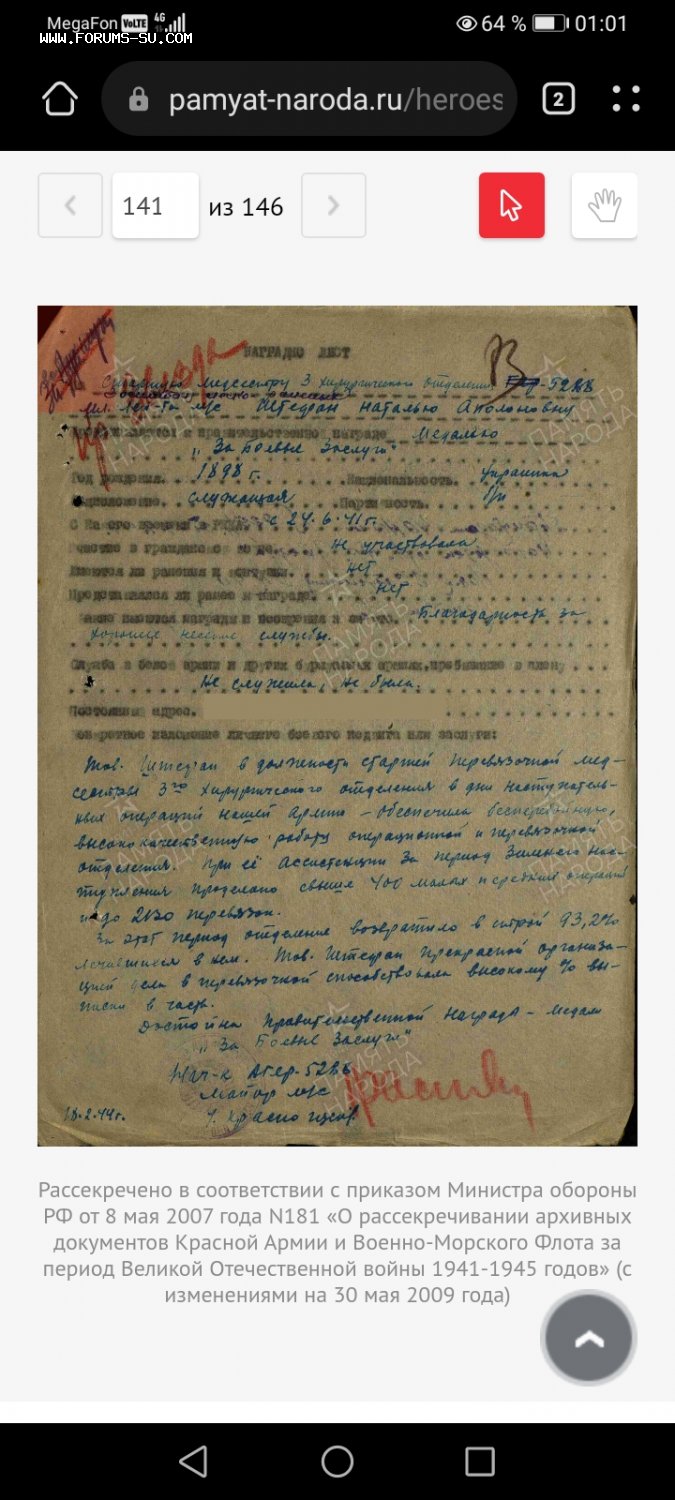 MegaFon VoLTE 4G 64 % 01:01
www.forums-su.com
pamyat-naroda.ru/heroes 2
141 из 146
НАГРАДНО ЛИСТ
Старшую медсестру 3 хирургического отделения 5288
мл. лей-та м/с Штефан Наталью
к правительственной награде Медалью
"За Боевые Заслуги"
Год рождения. 1898 г. Национальность. украинка
служащая Партийность. б/п
с 24.6.41г.
Участие в гражданско не участвовала
Имеются ли ранения и контузии. нет
Представлялся ли ранее к награде. нет
Какие имеются награды и поощрения Благодарность за
хорошее несение службы.
Служба в белой армии и других буржуазных армиях, пребывание в плену
Не служила, не была.
Постоянный адрес.
Конкретное изложение личного боевого подвига или заслуги:
Тов. Штефан в должности старшей перевязочной мед-
сестры 3го хирургического отделения в дни наступатель-
ных операций нашей Армии – обеспечила бесперебойную,
высококачественную работу операционной и перевязочной
отделения. При её ассистенции за период Зимнего нас-
тупления проделано свыше 400 малых и средних операций
и до 2030 перевязок.
За этот период отделение возвратило в строй 93,2%
лечившихся в нем. Тов. Штефан прекрасной организа-
цией дела в перевязочной способствовала высокому % вы-
писки в часть.
Достойна Правительственной Награды – медали
"За Боевые Заслуги"
Нач-к 5288
майор м/с
18.2.44г.
Рассекречено в соответствии с приказом Министра обороны
РФ от 8 мая 2007 года N181 «О рассекречивании архивных
документов Красной Армии и Военно-Морского Флота за
период Великой Отечественной войны 1941-1945 годов» (с
изменениями на 30 мая 2009 года)